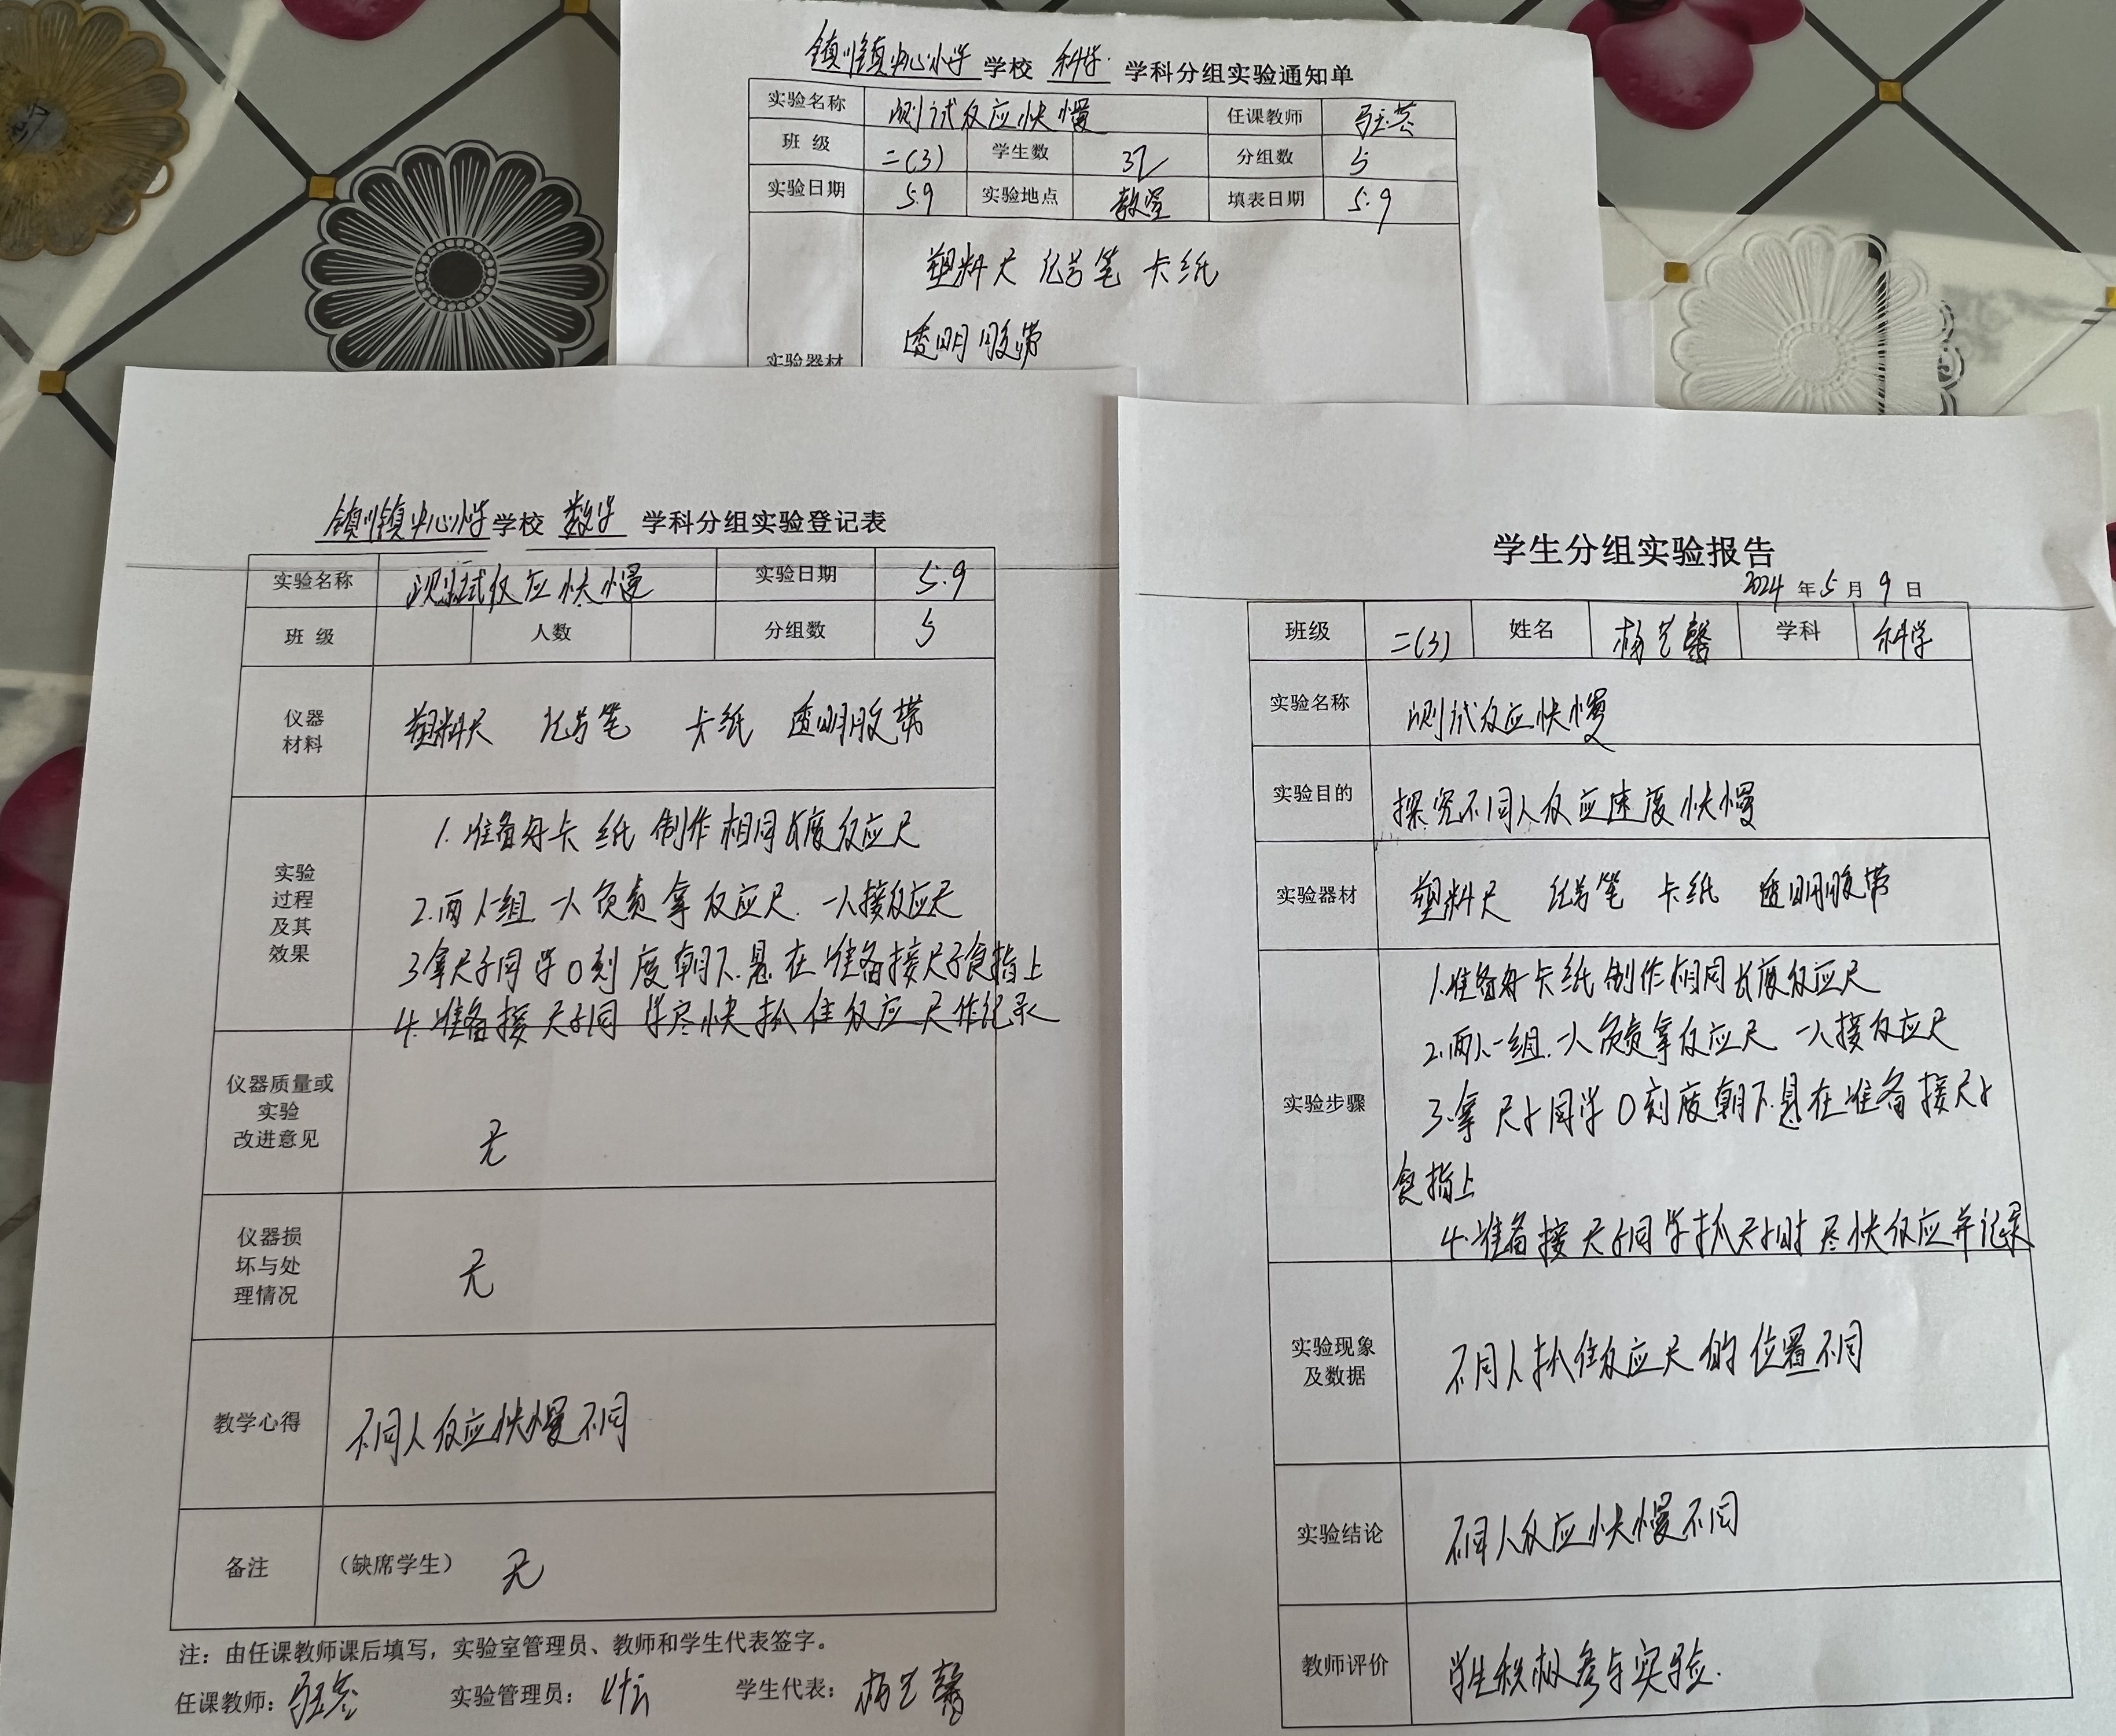 镇川镇中心小学 学校 科学 学科分组实验通知单
实验名称 测试反应快慢 任课教师
班 级 二(3) 学生数 37 分组数 5
实验日期 5.9 实验地点 教室 填表日期 5.9
实验器材 塑料尺 记号笔 卡纸
透明胶带
镇川镇中心小学 学校 数学 学科分组实验登记表
实验名称 测试反应快慢 实验日期 5.9
班 级 人数 分组数 5
仪器
材料
塑料尺 记号笔 卡纸 透明胶带
实验
过程
及其
效果
1.准备好卡纸 制作相同长度反应尺
2.两人一组 一人负责拿反应尺. 一人接反应尺
3.拿尺子同学0刻度朝下.悬在准备接尺子食指上
4.准备接尺子同学尽快抓住反应尺作记录
仪器质量或
实验
改进意见
无
仪器损
坏与处
理情况
无
教学心得 不同人反应快慢不同
备注 （缺席学生） 无
注：由任课教师课后填写，实验室管理员、教师和学生代表签字。
任课教师： 实验管理员： 学生代表：杨艺馨
学生分组实验报告
2024 年 5 月 9 日
班级 二(3) 姓名 杨艺馨 学科 科学
实验名称 测试反应快慢
实验目的 探究不同人反应速度快慢
实验器材 塑料尺 记号笔 卡纸 透明胶带
实验步骤
1.准备好卡纸 制作相同长度反应尺
2.两人一组.一人负责拿反应尺 一人接反应尺
3.拿尺子同学0刻度朝下.悬在准备接尺子
食指上
4.准备接尺子同学抓尺子时尽快反应并记录
实验现象
及数据
不同人抓住反应尺的位置不同
实验结论 不同人反应快慢不同
教师评价 学生积极参与实验.